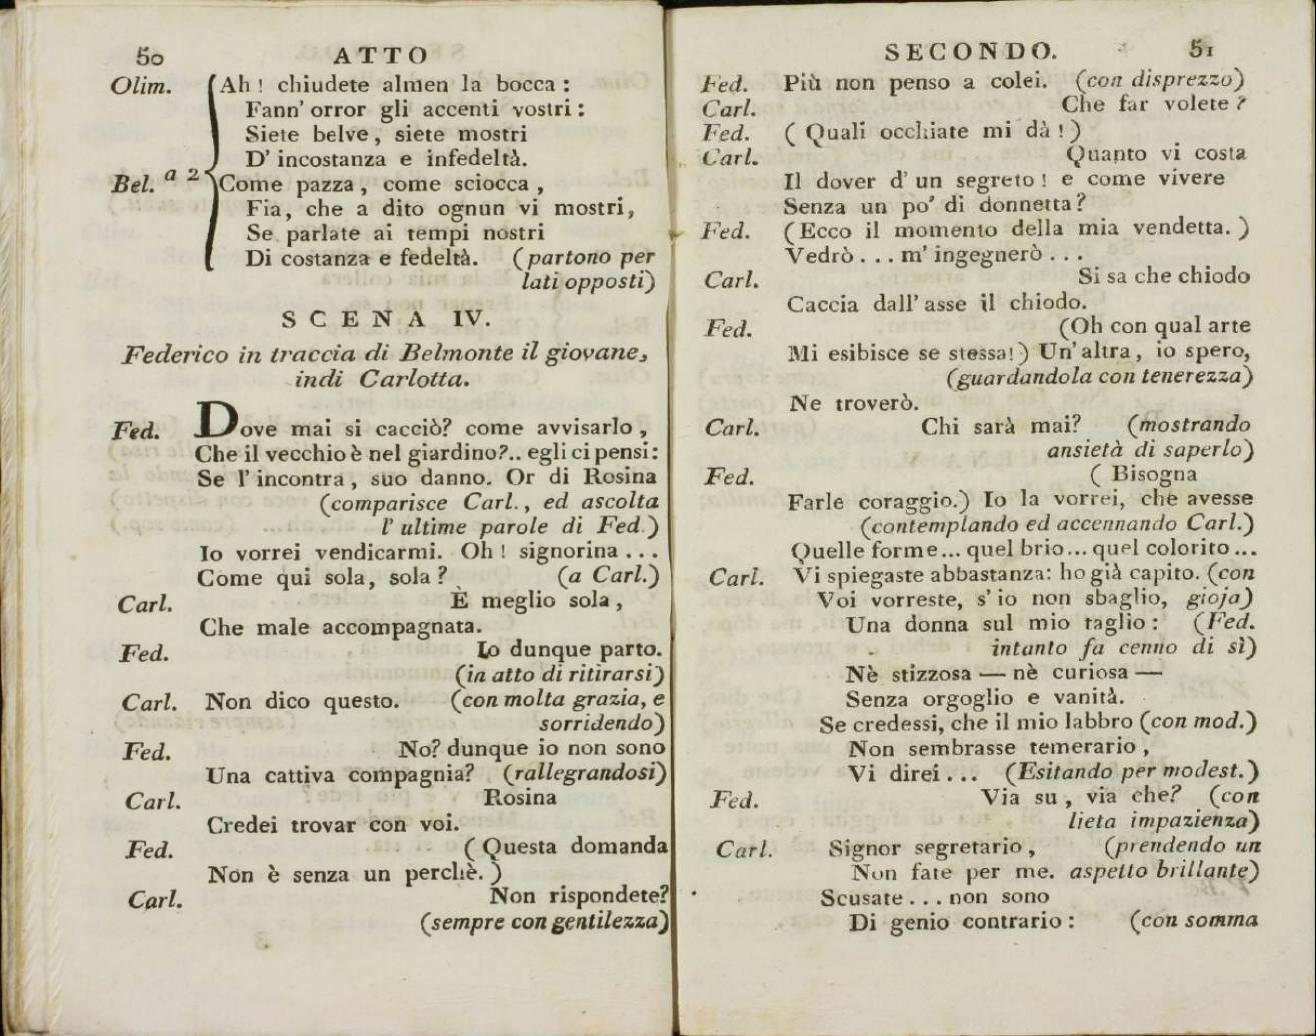 50 ATTO
Olim. Ah! chiudete almen la bocca:
Fann' orror gli accenti vostri:
Siete belve, siete mostri
D' incostanza e infedeltà.
Bel. a 2 Come pazza, come sciocca,
Fia, che a dito ognun vi mostri,
Se parlate ai tempi nostri
Di costanza e fedeltà. (partono per
lati opposti)
SCENA IV.
Federico in traccia di Belmonte il giovane,
indi Carlotta.
Fed. Dove mai si cacciò? come avvisarlo,
Che il vecchio è nel giardino?.. egli ci pensi:
Se l' incontra, suo danno. Or di Rosina
(comparisce Carl., ed ascolta
l' ultime parole di Fed.)
Io vorrei vendicarmi. Oh! signorina...
Come qui sola, sola? (a Carl.)
Carl. È meglio sola,
Che male accompagnata.
Fed. Io dunque parto.
(in atto di ritirarsi)
Carl. Non dico questo. (con molta grazia, e
sorridendo)
Fed. No? dunque io non sono
Una cattiva compagnia? (rallegrandosi)
Carl. Rosina
Credei trovar con voi.
Fed. (Questa domanda
Non è senza un perchè.)
Carl. Non rispondete?
(sempre con gentilezza)
SECONDO. 51
Fed. Più non penso a colei. (con disprezzo)
Carl. Che far volete?
Fed. (Quali occhiate mi dà!)
Carl. Quanto vi costa
Il dover d' un segreto! e come vivere
Senza un po' di donnetta?
Fed. (Ecco il momento della mia vendetta.)
Vedrò... m' ingegnerò...
Carl. Si sa che chiodo
Caccia dall' asse il chiodo.
Fed. (Oh con qual arte
Mi esibisce se stessa!) Un' altra, io spero,
(guardandola con tenerezza)
Ne troverò.
Carl. Chi sarà mai? (mostrando
ansietà di saperlo)
Fed. (Bisogna
Farle coraggio.) Io la vorrei, che avesse
(contemplando ed accennando Carl.)
Quelle forme... quel brio... quel colorito...
Carl. Vi spiegaste abbastanza: ho già capito. (con
Voi vorreste, s' io non sbaglio, gioja)
Una donna sul mio taglio: (Fed.
intanto fa cenno di sì)
Nè stizzosa — nè curiosa —
Senza orgoglio e vanità.
Se credessi, che il mio labbro (con mod.)
Non sembrasse temerario,
Vi direi... (Esitando per modest.)
Fed. Via su, via che? (con
lieta impazienza)
Carl. Signor segretario, (prendendo un
Non fate per me. aspetto brillante)
Scusate... non sono
Di genio contrario: (con somma